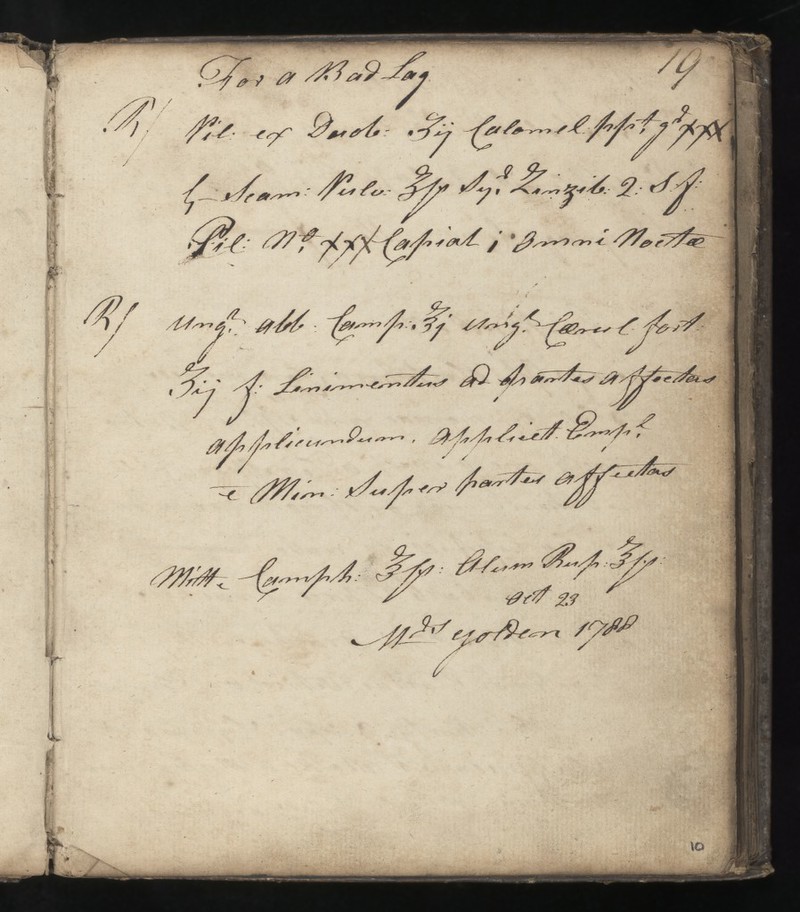 19
For a Bad Lag
R/ Pil: ex Duob: ʒij Calomel ppt. gr. xxx
Scam: Pulv: ʒſs Syr. Zinzib: q: S f:
Pil: No. xxx Capiat i omni Noctæ
R/ Ungt. alb: Camp: ℥j Ungt. Cœrul fort
℥ij f: Linimentus ad partes affectas
applicundum. applict. Empl.
e Min: Super partes affectas
Mitte Camph: ℥ſs: Alum Rup: ℥ſs:
Oct 23
Mrs Yolden 1788
10